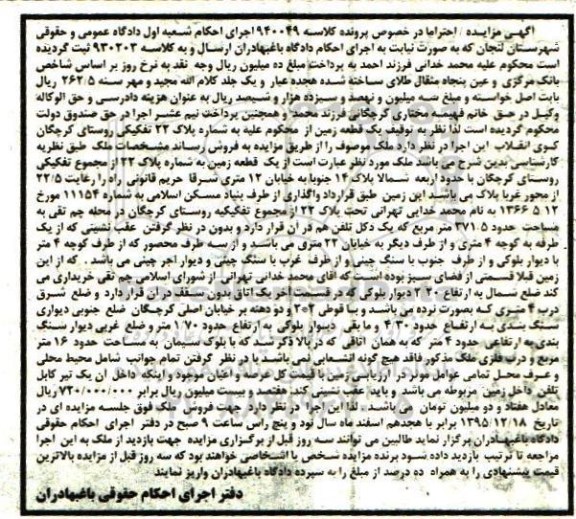 آگهی مزایده / احتراما در خصوص پرونده کلاسه ۹۴۰۰۴۹ اجرای احکام شعبه اول دادگاه عمومی و حقوقی
شهرستان لنجان که به صورت نیابت به اجرای احکام دادگاه باغبهادران ارسال و به کلاسه ۹۳۰۲۰۳ ثبت گردیده
است محکوم علیه محمد خدائی فرزند احمد به پرداخت مبلغ ده میلیون ریال وجه نقد به نرخ روز بر اساس شاخص
بانک مرکزی و عین پنجاه مثقال طلای ساخته شده هجده عیار و یک جلد کلام الله مجید و مهر سنه ۲۶۲/۵ ریال
بابت اصل خواسته و مبلغ سه میلیون و نهصد و سیزده هزار و ششصد ریال به عنوان هزینه دادرسی و حق الوکاله
وکیل در حق خانم فهیمه مختاری کرچگانی فرزند محمد و همچنین پرداخت نیم عشر اجرا در حق صندوق دولت
محکوم گردیده است لذا نظر به توقیف یک قطعه زمین از محکوم علیه به شماره پلاک ۲۲ تفکیکی روستای کرچگان
کوی انقلاب این اجرا در نظر دارد ملک موصوف را از طریق مزایده به فروش رساند مشخصات ملک طبق نظریه
کارشناسی بدین شرح می باشد ملک مورد نظر عبارت است از یک قطعه زمین به شماره پلاک ۲۲ از مجموع تفکیکی
روستای کرچگان با حدود اربعه شمالا پلاک ۱۴ جنوبا به خیابان ۱۲ متری شرقا حریم قانونی راه با رعایت ۲۲/۵
از محور غربا پلاک می باشد این زمین طبق قرارداد واگذاری از طرف بنیاد مسکن اسلامی به شماره ۱۱۱۵۴ مورخ
۱۲ ۵ ۱۳۶۶ به نام محمد خدایی تهرانی تحت پلاک ۲۲ از مجموع تفکیکیه روستای کرچگان در محله چم تقی به
مساحت حدود ۳۷۱/۵ متر مربع که یک دکل تلفن هم در آن قرار دارد و بدون در نظر گرفتن عقب نشینی که از یک
طرف به کوچه ۴ متری و از طرف دیگر به خیابان ۲۲ متری می باشد و از سه طرف محصور که از طرف کوچه ۴ متر
با دیوار بلوکی و از طرف جنوب با سنگ چینی و از طرف غرب با سنگ چینی و دیوار اجر چینی می باشد . که از این
زمین قبلا قسمتی از فضای سبز بوده است که آقای محمد خدائی تهرانی از شورای اسلامی چم تقی خریداری می
کند ضلع شمال به ارتفاع دیوار بلوکی که در قسمت آخر یک اتاق بدون سقف در آن قرار دارد و ضلع شرق
درب ۴ متری که بصورت نرده می باشد و با قوطی ۲*۳ و دو دهنه بر خیابان اصلی کرچگان ضلع جنوبی دیواری
سنگ بندی به ارتفاع حدود و مابقی دیوار بلوکی به ارتفاع حدود ۱/۷۰ متر و ضلع غربی دیوار سنگ
بندی به ارتفاعی حدود ۲ متر که به همان اتاقی که در بالا ذکر شد که با بلوک سیمان به مساحت حدود ۱۶ متر
مربع و درب فلزی ملک مذکور فاقد هیچ گونه انشعابی نمی باشد با در نظر گرفتن تمام جوانب شامل محیط محلی
و عرف محل تمامی عوامل موثر در ارزیابی زمین با قیمت کل عرصه و اعیان موجود و اینکه داخل آن یک تیر کابل
تلفن داخل زمین مربوطه می باشد و باید عقب نشینی کند: هفتصد و بیست میلیون ریال برابر ۷۲۰/۰۰۰/۰۰۰ ریال
معادل هفتاد و دو میلیون تومان می باشد . لذا این اجرا در نظر دارد جهت فروش ملک فوق جلسه مزایده ای در
تاریخ ۱۳۹۵/۱۲/۱۸ برابر با هجدهم اسفند ماه سال نود و پنج راس ساعت ۹ صبح در دفتر اجرای احکام حقوقی
دادگاه باغبهادران برگزار نماید طالبین می توانند سه روز قبل از برگزاری مزایده جهت بازدید از ملک به این اجرا
مراجعه تا ترتیب بازدید داده شود برنده مزایده شخص یا اشخاصی خواهند بود که سه روز قبل از مزایده بالاترین
قیمت پیشنهادی را به همراه ده درصد از مبلغ را به سپرده دادگاه باغبهادران واریز نمایند
دفتر اجرای احکام حقوقی باغبهادران